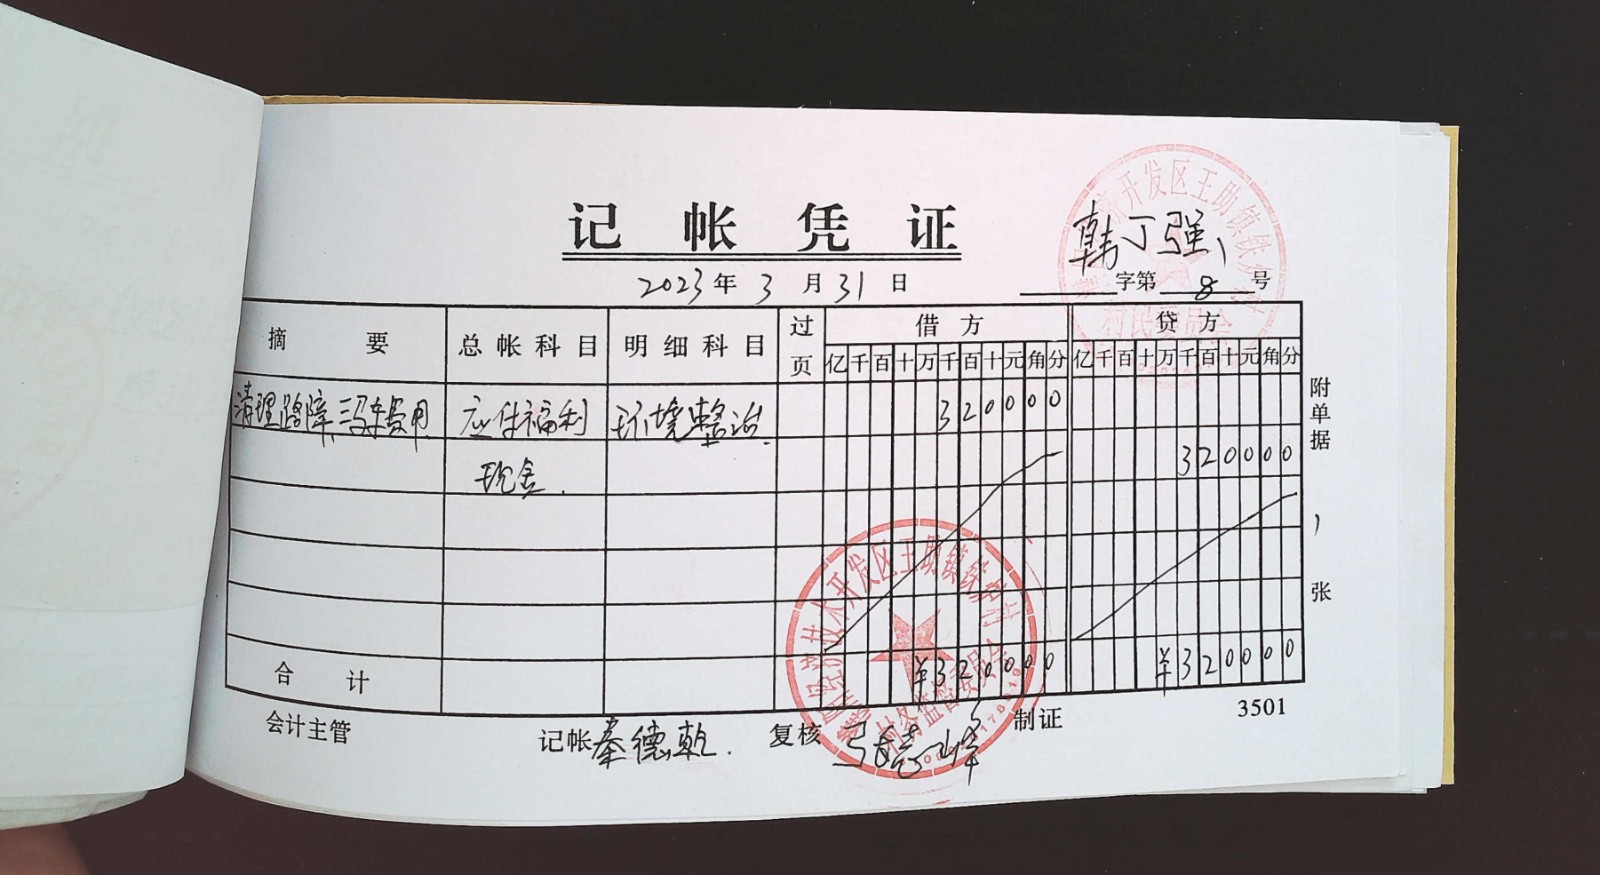 记帐凭证
韩丁强
2023年3月31日
字第 8 号
摘要 总帐科目 明细科目 过页 借方 贷方
亿千百十万千百十元角分 亿千百十万千百十元角分
清理路障、三马车费用 应付福利 环境整治 320000
现金 320000
合计 ¥320000 ¥320000
附单据 1 张
会计主管 记帐 秦德乾 复核 制证 3501
开发区王助镇铁
村民委员会
技术开发区王助镇铁
村务监督委员会